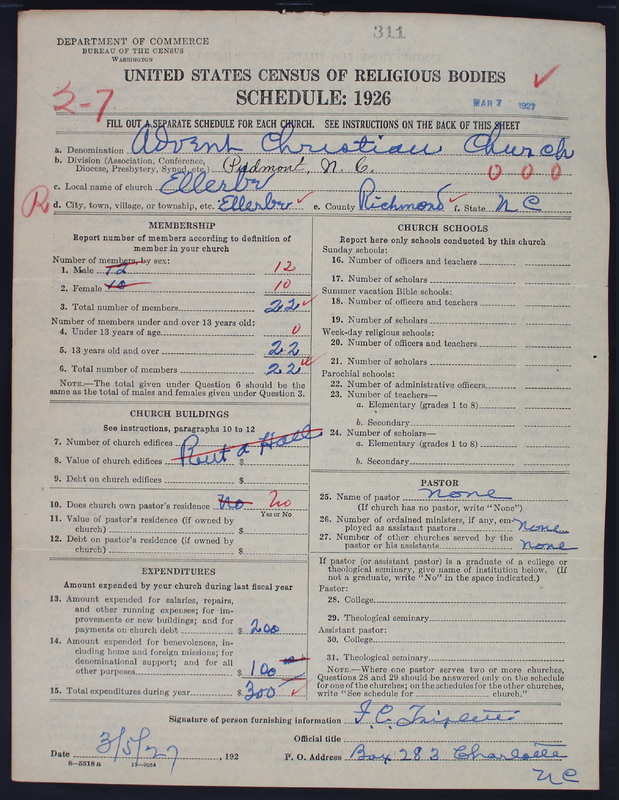 311
DEPARTMENT OF COMMERCE
BUREAU OF THE CENSUS
WASHINGTON
UNITED STATES CENSUS OF RELIGIOUS BODIES
SCHEDULE: 1926
2-7
MAR 7 1927
FILL OUT A SEPARATE SCHEDULE FOR EACH CHURCH. SEE INSTRUCTIONS ON THE BACK OF THIS SHEET
a. Denomination Advent Christian Church
b. Division (Association, Conference, Diocese, Presbytery, Synod, etc.) Piedmont, N. C. 0 0 0
c. Local name of church Ellerbe
R d. City, town, village, or township, etc. Ellerbe e. County Richmond f. State N C
MEMBERSHIP
Report number of members according to definition of
member in your church
Number of members, by sex:
1. Male 12 12
2. Female 10 10
3. Total number of members 22
Number of members under and over 13 years old:
4. Under 13 years of age 0
5. 13 years old and over 22
6. Total number of members 22
NOTE.—The total given under Question 6 should be the
same as the total of males and females given under Question 3.
CHURCH BUILDINGS
See instructions, paragraphs 10 to 12
7. Number of church edifices Rent a Hall
8. Value of church edifices $
9. Debt on church edifices $
10. Does church own pastor's residence No No
Yes or No
11. Value of pastor's residence (if owned by
church) $
12. Debt on pastor's residence (if owned by
church) $
EXPENDITURES
Amount expended by your church during last fiscal year
13. Amount expended for salaries, repairs,
and other running expenses; for im-
provements or new buildings; and for
payments on church debt $ 200
14. Amount expended for benevolences, in-
cluding home and foreign missions; for
denominational support; and for all
other purposes $ 100
15. Total expenditures during year $ 300
CHURCH SCHOOLS
Report here only schools conducted by this church
Sunday schools:
16. Number of officers and teachers
17. Number of scholars
Summer vacation Bible schools:
18. Number of officers and teachers
19. Number of scholars
Week-day religious schools:
20. Number of officers and teachers
21. Number of scholars
Parochial schools:
22. Number of administrative officers
23. Number of teachers—
a. Elementary (grades 1 to 8)
b. Secondary
24. Number of scholars—
a. Elementary (grades 1 to 8)
b. Secondary
PASTOR
25. Name of pastor none
(If church has no pastor, write "None")
26. Number of ordained ministers, if any, em-
ployed as assistant pastors none
27. Number of other churches served by the
pastor or his assistants none
If pastor (or assistant pastor) is a graduate of a college or
theological seminary, give name of institution below. (If
not a graduate, write "No" in the space indicated.)
Pastor:
28. College
29. Theological seminary
Assistant pastor:
30. College
31. Theological seminary
NOTE.—Where one pastor serves two or more churches,
Questions 28 and 29 should be answered only on the schedule
for one of the churches; on the schedules for the other churches,
write "See schedule for church."
Signature of person furnishing information
Official title
Date 3/5/27, 192 P. O. Address Box 283 Charlotte
N C
8—5518 a 11—9024